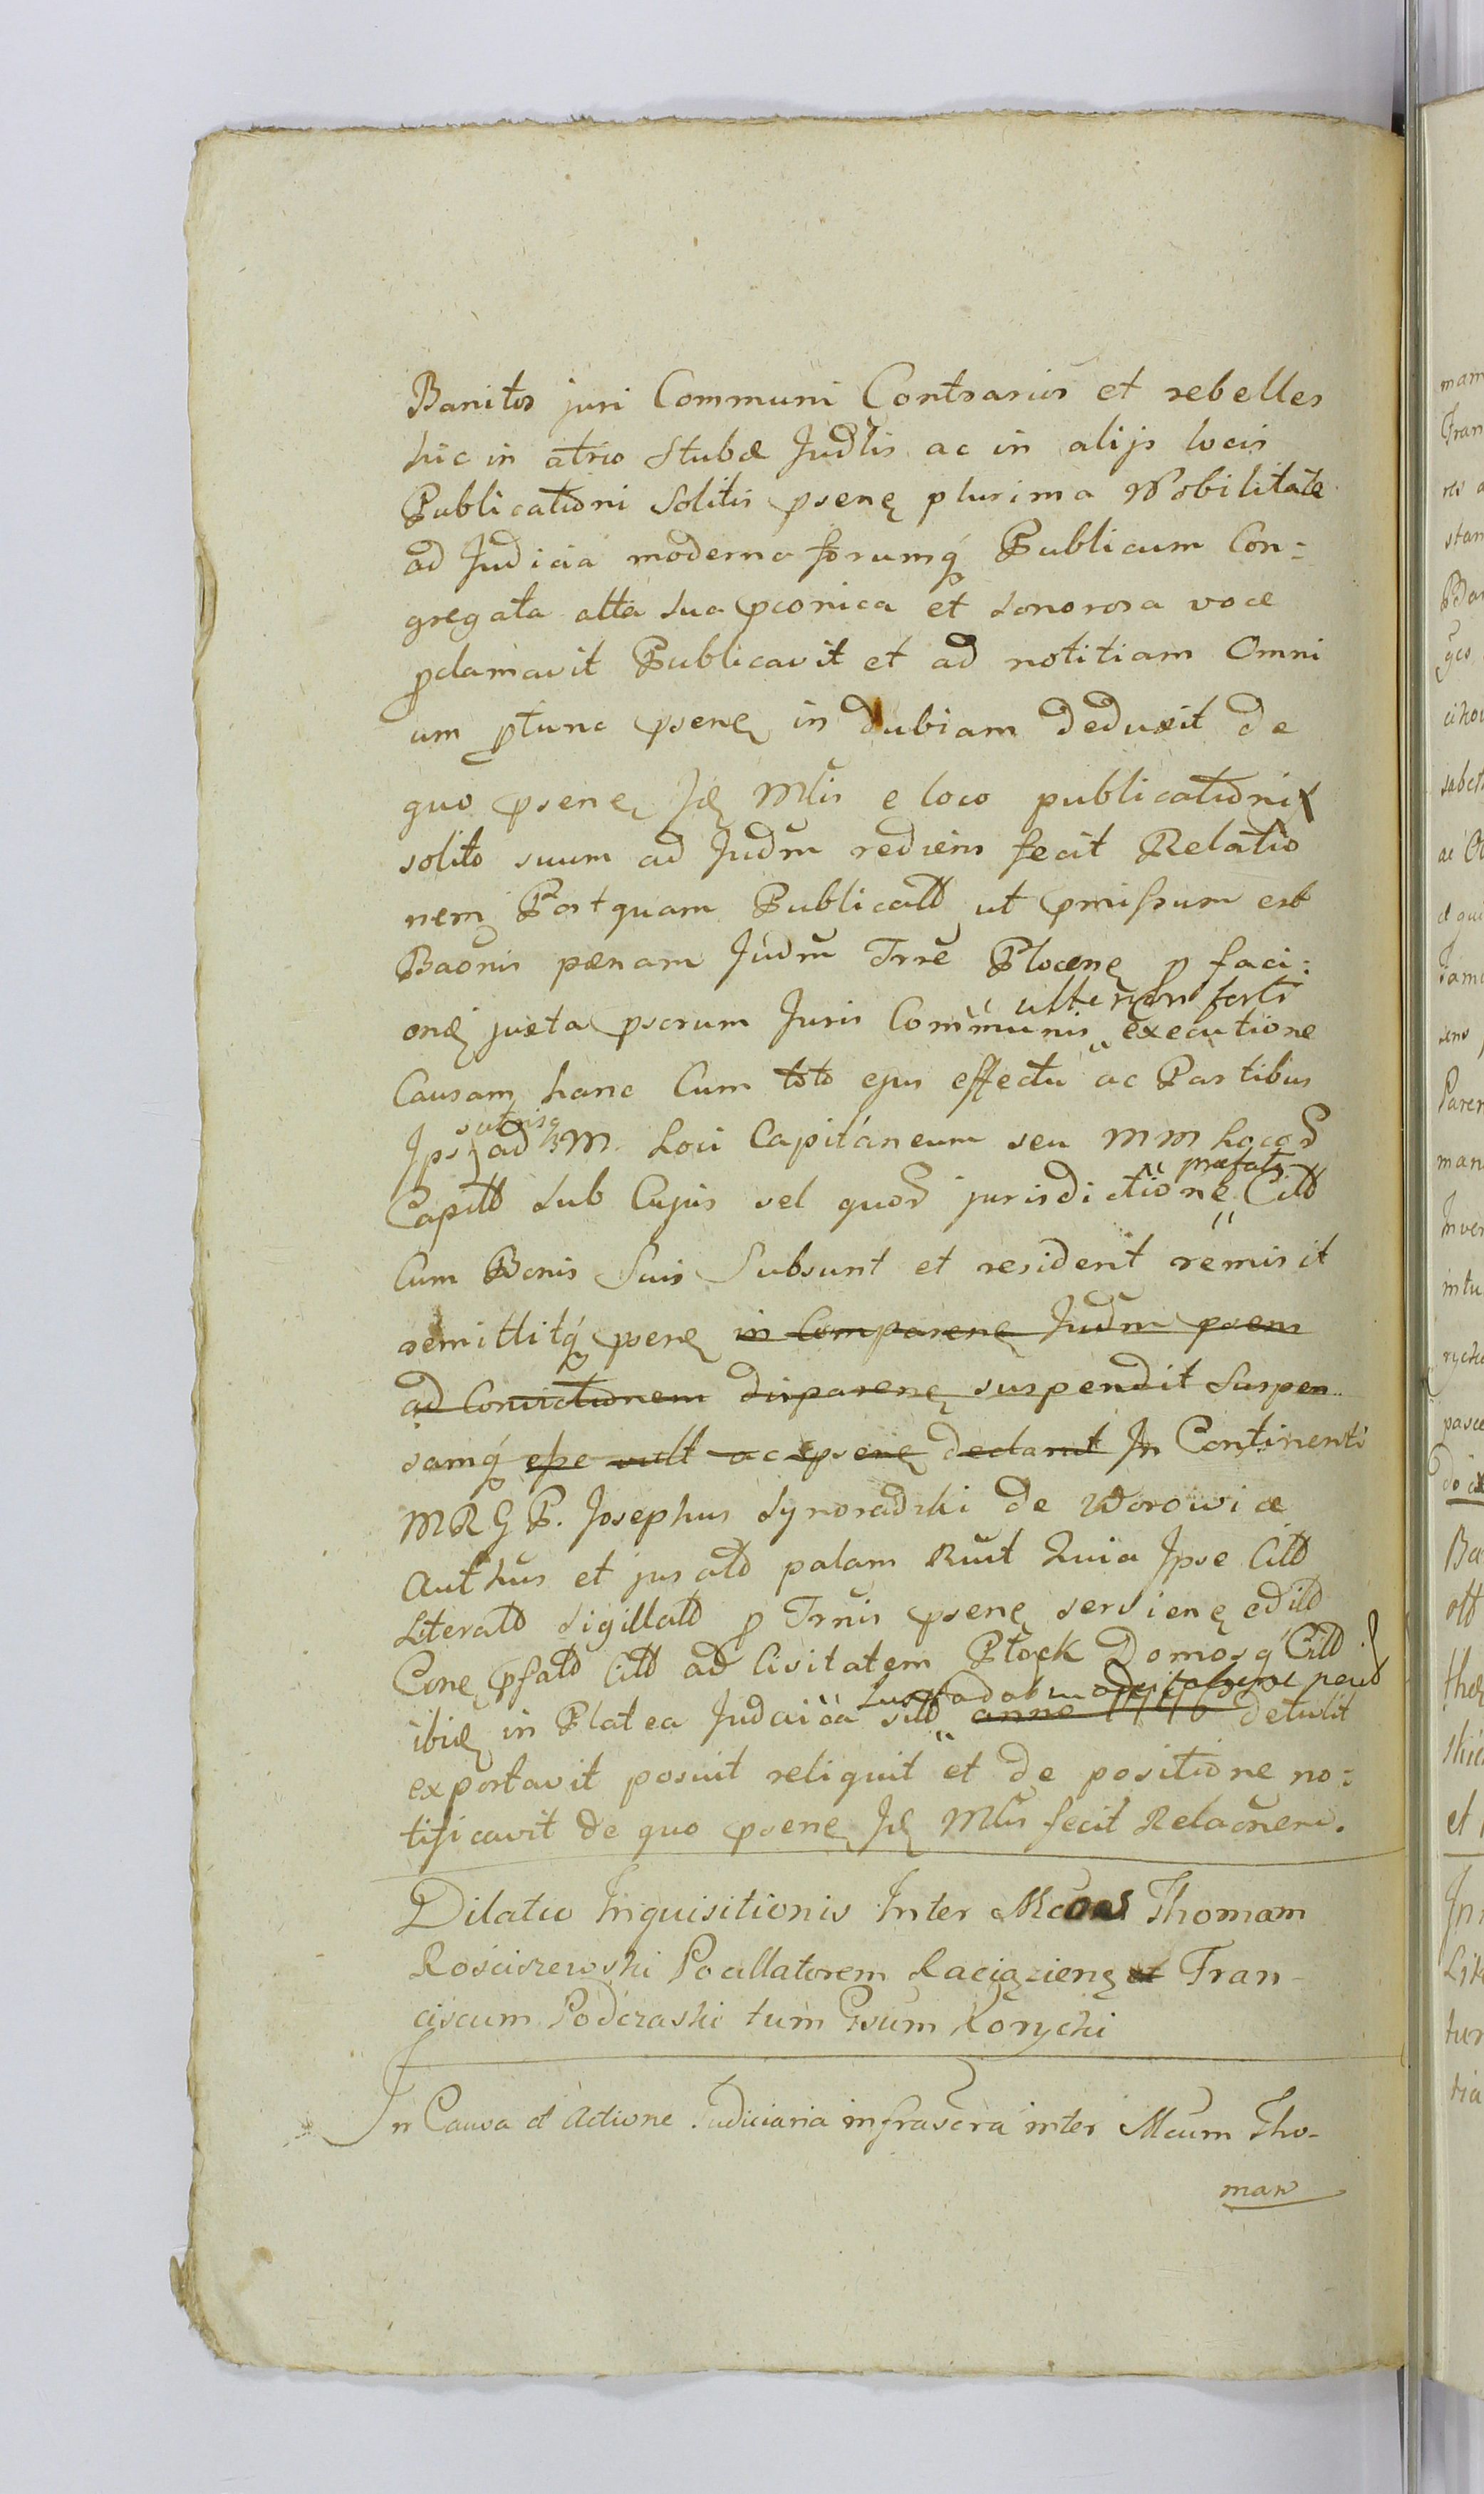 Banitos juri Communi Contrarios et rebelles
hic in atrio Stubæ Judlis ac in alijs locis
Publicationi Solitis psenę plurima Nobilitate
ad Judicia moderna forumq́ Publicum Con=
gregata alta sua pconica et sonorosa voce
pclamavit Publicavit et ad notitiam Omni
um ptunc psenę in dubiam deduxit de
quo psenę Jd Mlis e loco publicationi
solito suum ad Judm rediens fecit Relatio
nem Postquam Publicatt ut pmissum est
Baonis pænam Judm Trre Plocenę p faci:
onę juxta pscrum Juris Communis executione
Causam hanc Cum toto ejus effectu ac Partibus
Ipsis ad M. Loci Capitaneum seu MM Locor
utrisq
Capitt sub Cujus vel quor jurisdictione præfati Citt
Cum Bonis Suis Subsunt et resident remisit
remittitq́ psenę in Comparenę Judm psens
ad Convictionem disparenę suspendit Suspen
samq́ esse vult ac psenę declarat In Continenti
MRGP. Josephus Synoradzki de Worowice
Authus et juratt palam Rūit Quia Ipse Citt
Literatt Sigillatt p Trnis psenę servienę editt
Conę pfatt Citt ad Civitatem Płock Domosq́ Citt
ibidę in Platea Judaica sitt anno 1776 detulit
exportavit posuit reliquit et de positione no=
tificavit de quo psenę Jd Mlis fecit Relaōnem.
Dilatio Inquisitionis Inter Mcos Thomam
Rosciszewski Pocillatorem Raciązienę et Fran-
ciscum Podczaski tum Gsum Korycki
In Causa et Actione Judiciaria infrascra inter Mcum Tho-
mam